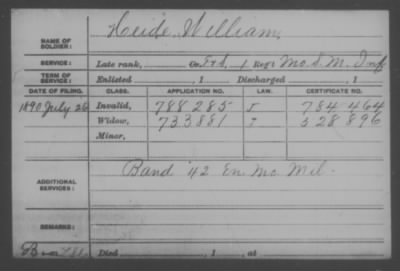 NAME OF SOLDIER: Heide, William.
SERVICE: Late rank, Co. F&S, 1 Reg't Mo. S. M. Inf
TERM OF SERVICE: Enlisted , 1 Discharged , 1
DATE OF FILING. CLASS. APPLICATION NO. LAW. CERTIFICATE NO.
1890 July 26 Invalid, 788285 J 784464
Widow, 733881 J 528896
Minor,
ADDITIONAL SERVICES: Band 42 En. Mo. Mil.
REMARKS:
Died , 1 , at